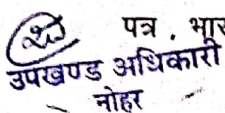 पत्र . भार
उपखण्ड अधिकारी
नोहर